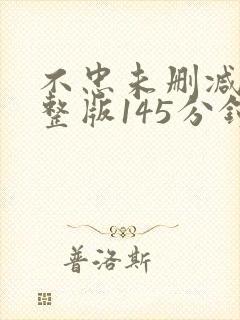 不忠未删减
整版145分钟
普洛斯